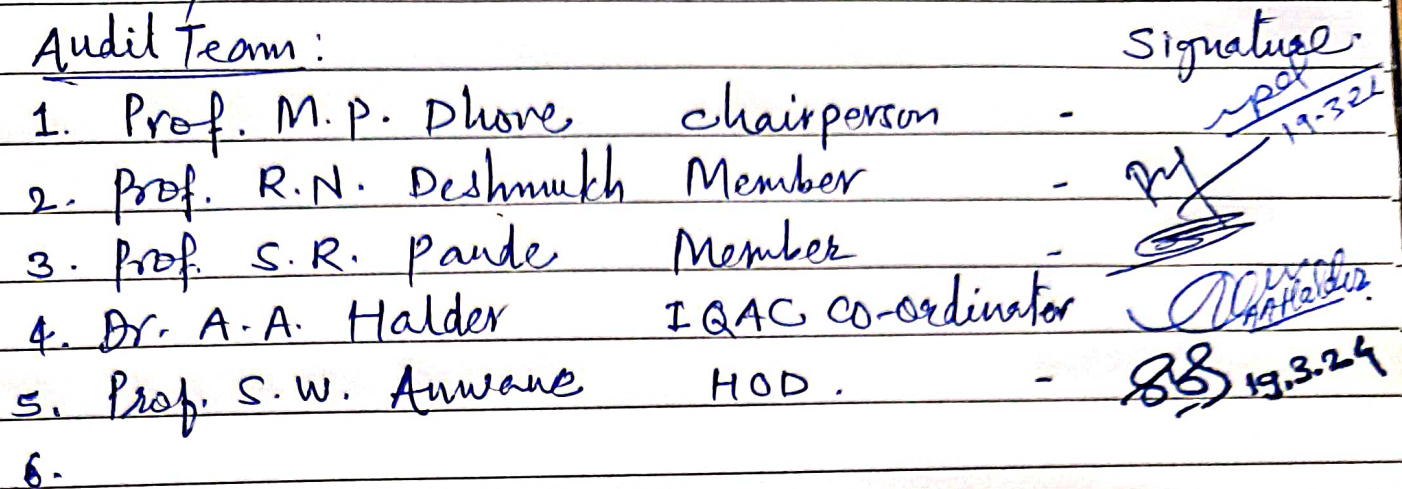 Audit Team : Signature
1. Prof. M.P. Dhore chairperson -
19-3-24
2. Prof. R.N. Deshmukh Member -
3. Prof. S.R. Pande Member -
4. Dr. A.A. Halder IQAC co-ordinator AAHalder
5. Prof. S.W. Anwane HOD. - 19.3.24
6.